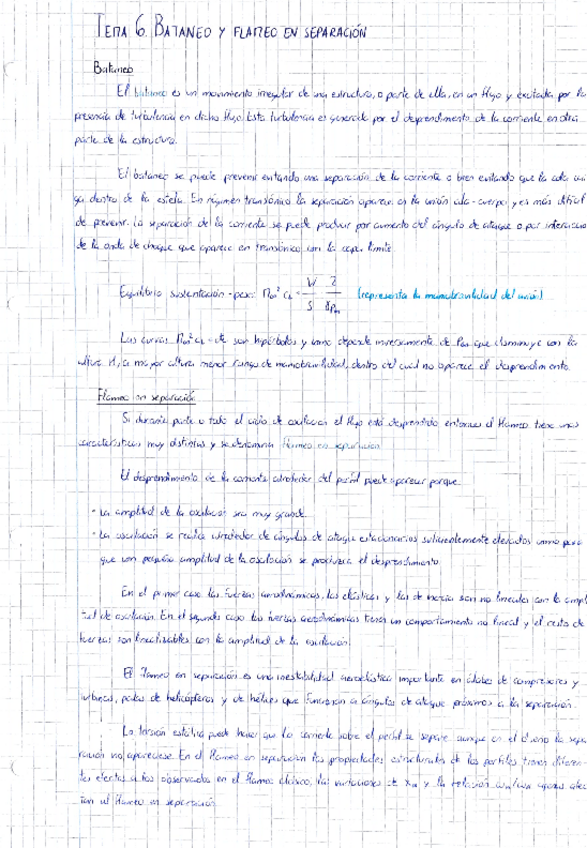 TEMA 6. BATANEO Y FLAMEO EN SEPARACIÓN
Bataneo
El bataneo es un movimiento irregular de una estructura, o parte de ella, en un flujo y excitada por la
presencia de turbulencia en dicho flujo. Esta turbulencia es generada por el desprendimiento de la corriente en otra
parte de la estructura.
El bataneo se puede prevenir evitando una separación de la corriente o bien evitando que la cola
dentro de la estela. En régimen transónico la separación aparece en la unión ala-cuerpo y es más difícil
de prevenir. La separación de la corriente se puede producir por aumento del ángulo de ataque o por interacción
de la onda de choque que aparece en transónico con la capa límite.
Equilibrio sustentación-peso: M∞² CL = W/S 2/γP∞ (representa la maniobrabilidad del avión)
Las curvas M∞² CL = cte son hipérbolas y como depende inversamente de P∞ que disminuye con la
altura H, a mayor altura menor rango de maniobrabilidad, dentro del cual no aparece el desprendimiento.
Flameo en separación
Si durante parte o todo el ciclo de oscilación el flujo está desprendido entonces el flameo tiene unas
características muy distintas y se denomina flameo en separación
El desprendimiento de la corriente alrededor del perfil puede aparecer porque:
· La amplitud de la oscilación sea muy grande.
· La oscilación se realiza alrededor de ángulos de ataque estacionarios suficientemente elevados como para
que con pequeña amplitud de la oscilación se produzca el desprendimiento
En el primer caso las fuerzas aerodinámicas, las elásticas y las de inercia son no lineales con la
de oscilación. En el segundo caso las fuerzas aerodinámicas tienen un comportamiento no lineal y el resto de
fuerzas son linealizables con la amplitud de la oscilación.
El flameo en separación es una inestabilidad aeroelástica importante en álabes de compresores y
turbinas, palas de helicópteros y de hélices que funcionan a ángulos de ataque próximos a la separación.
La torsión estática puede hacer que la corriente sobre el perfil se separe aunque en el diseño la
no apareciese. En el flameo en separación las propiedades estructurales de los perfiles tienen
efectos a los observados en el flameo clásico, las variaciones de xα y la relación apenas
al flameo en separación.